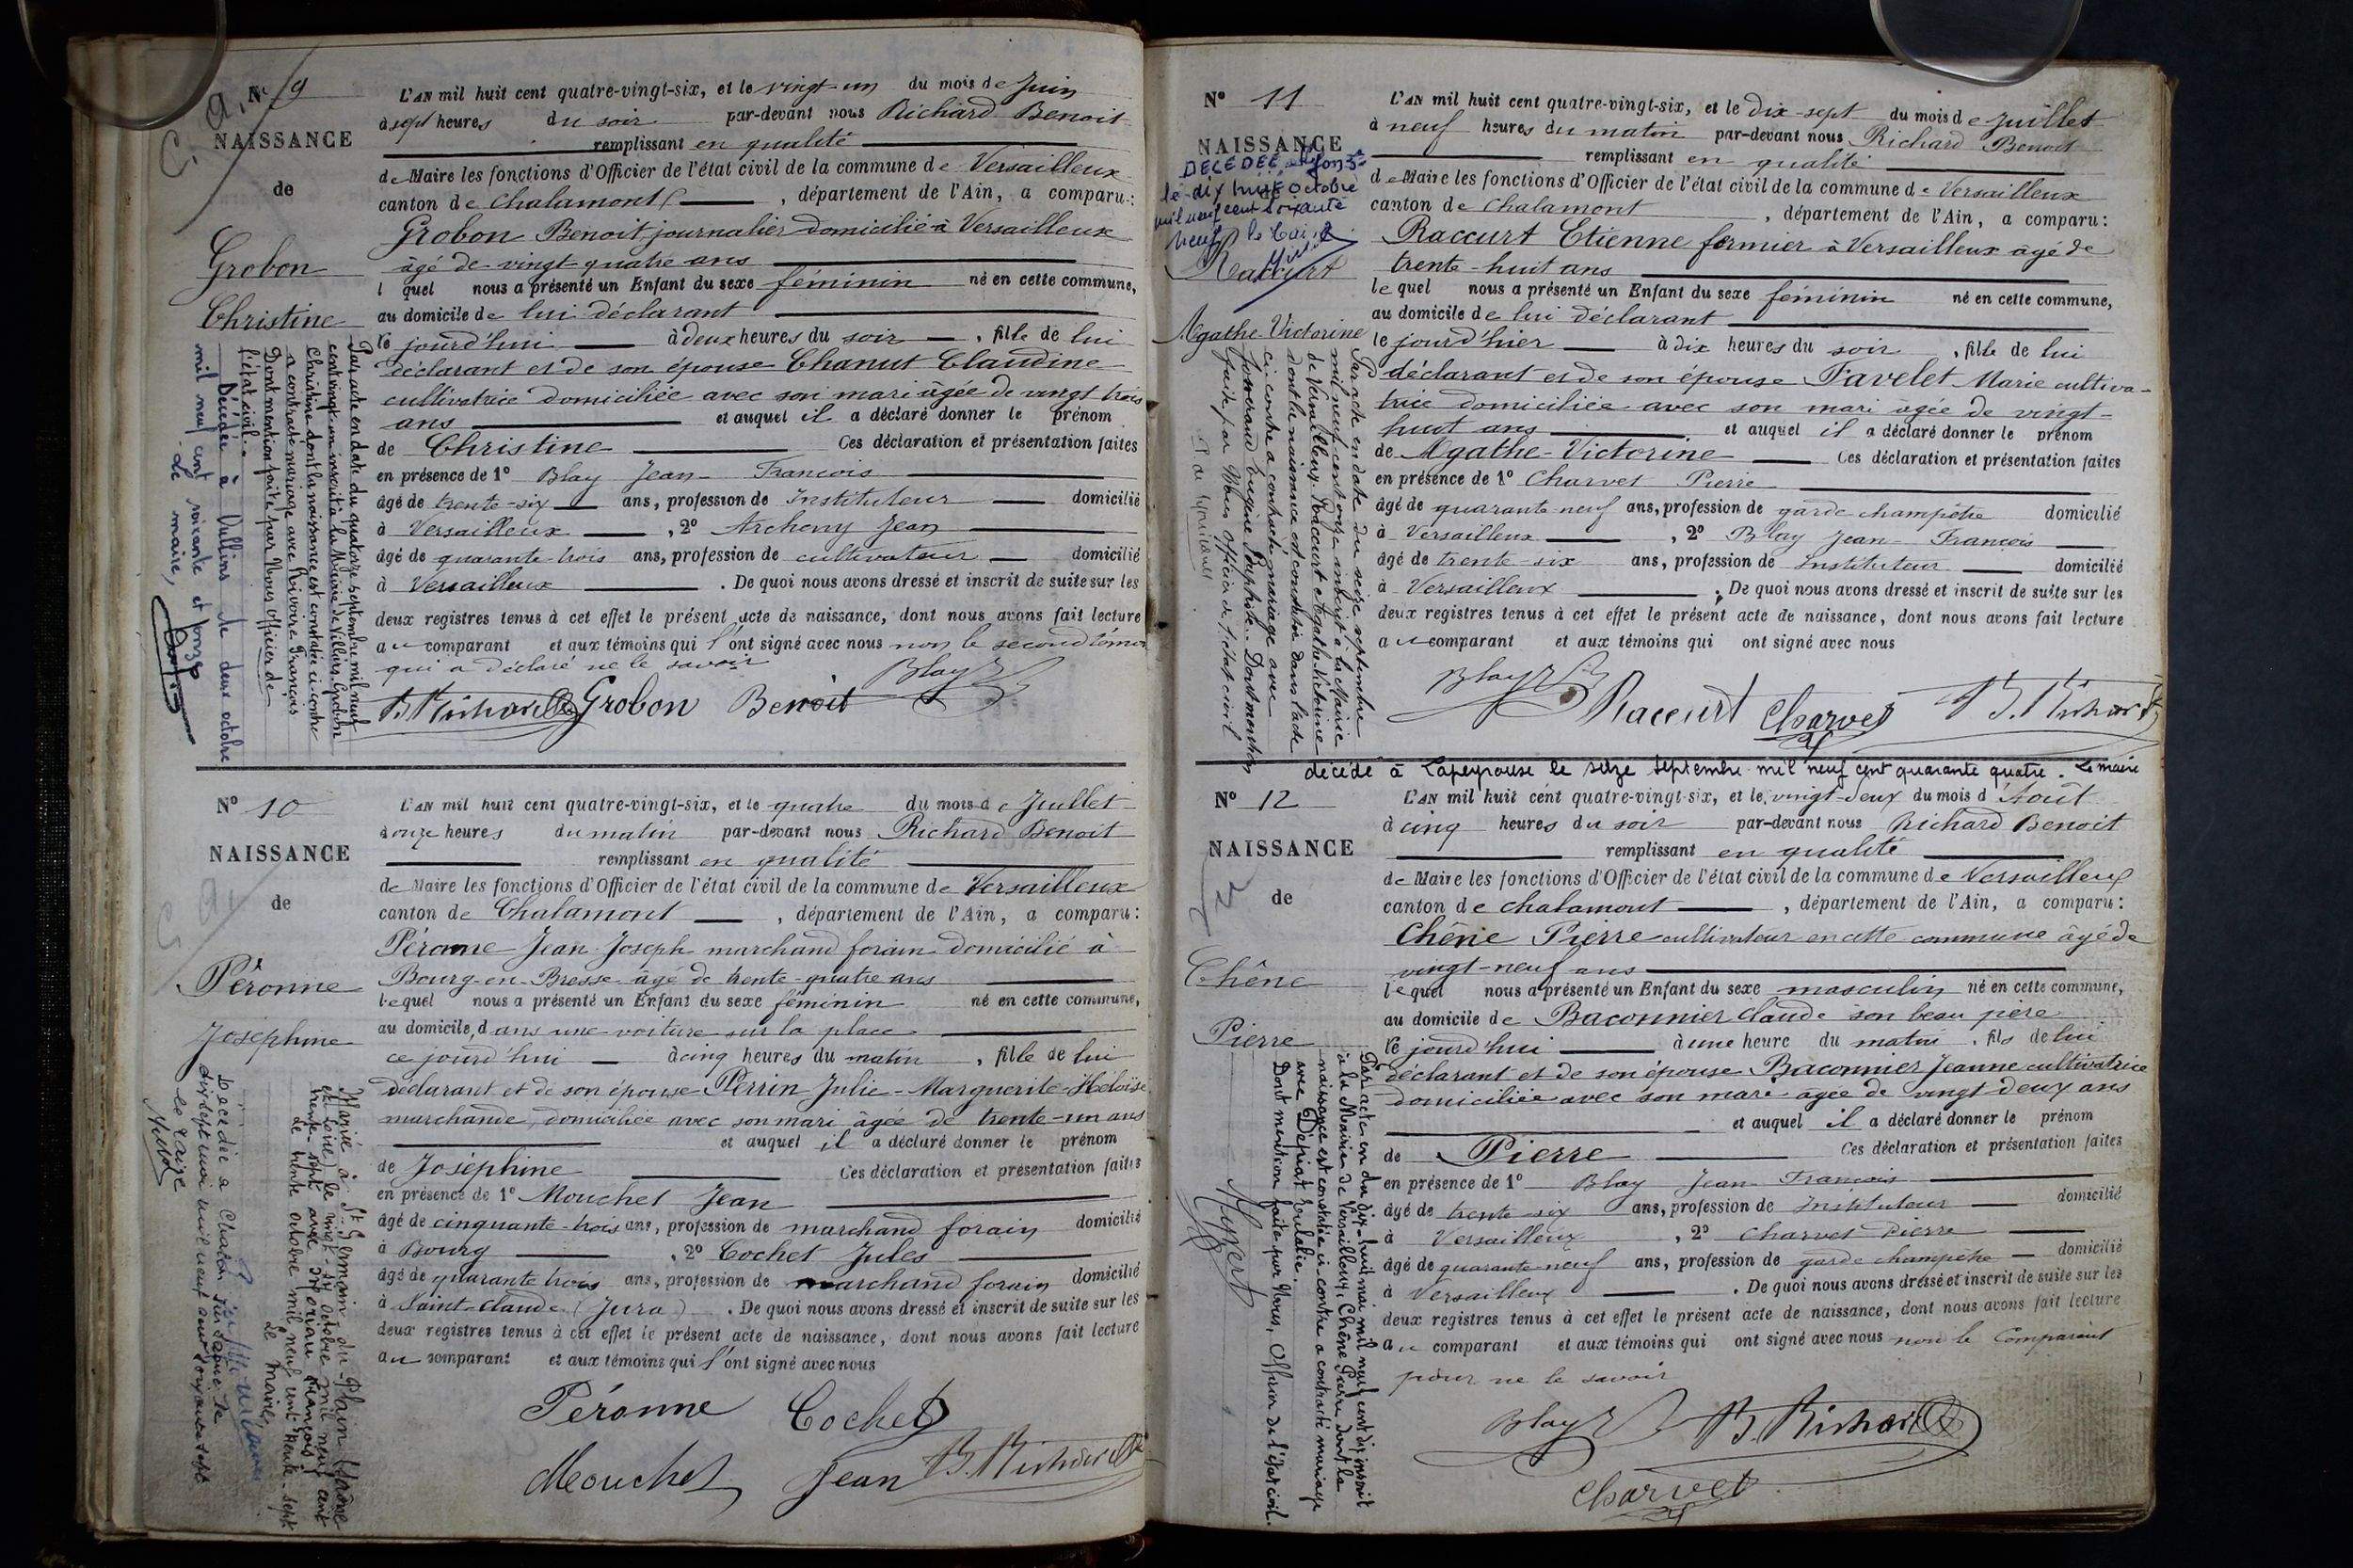 N° 9
NAISSANCE
de
Grobon
Christine
L'AN mil huit cent quatre-vingt-six, et le vingt-un du mois de Juin
à sept heures du soir par-devant nous Richard Benoit
remplissant en qualité
de Maire les fonctions d'Officier de l'état civil de la commune de Versailleux
canton de Chalamont, département de l'Ain, a comparu:
Grobon Benoit, journalier domicilié à Versailleux
âgé de vingt quatre ans
lequel nous a présenté un Enfant du sexe féminin né en cette commune,
au domicile de lui déclarant
le jourd'hui à deux heures du soir, fille de lui
déclarant et de son épouse Chanut Claudine
cultivatrice domiciliée avec son mari âgée de vingt trois
ans et auquel il a déclaré donner le prénom
de Christine Ces déclaration et présentation faites
en présence de 1° Blay Jean-François
âgé de trente-six ans, profession de Instituteur domicilié
à Versailleux, 2° Archeny Jean
âgé de quarante-trois ans, profession de cultivateur domicilié
à Versailleux. De quoi nous avons dressé et inscrit de suite sur les
deux registres tenus à cet effet le présent acte de naissance, dont nous avons fait lecture
au comparant et aux témoins qui l'ont signé avec nous non le second témoin
qui a déclaré ne le savoir
Blay
B. Richard Grobon Benoit
Par acte en date du quatorze septembre mil neuf
cent vingt-un inscrit à la Mairie de Villars, Grobon
Christine dont la naissance est constatée ci-contre
a contracté mariage avec Rivoire François
Dont mention faite par Nous officier de
l'état civil.
Décédée à Oullins le deux octobre
mil neuf cent soixante et onze
Le maire,
N° 10
NAISSANCE
de
Péronne
Joséphine
L'AN mil huit cent quatre-vingt-six, et le quatre du mois de Juillet
à onze heures du matin par-devant nous Richard Benoit
remplissant en qualité
de Maire les fonctions d'Officier de l'état civil de la commune de Versailleux
canton de Chalamont, département de l'Ain, a comparu:
Péronne Jean Joseph marchand forain domicilié à
Bourg-en-Bresse âgé de trente-quatre ans
lequel nous a présenté un Enfant du sexe féminin né en cette commune,
au domicile, dans une voiture sur la place
ce jourd'hui à cinq heures du matin, fille de lui
déclarant et de son épouse Perrin Julie-Marguerite-Héloïse
marchande, domiciliée avec son mari âgée de trente-un ans
et auquel il a déclaré donner le prénom
de Joséphine Ces déclaration et présentation faites
en présence de 1° Mouchet Jean
âgé de cinquante-trois ans, profession de marchand forain domicilié
à Bourg, 2° Cochet Jules
âgé de quarante trois ans, profession de marchand forain domicilié
à Saint-Claude (Jura). De quoi nous avons dressé et inscrit de suite sur les
deux registres tenus à cet effet le présent acte de naissance, dont nous avons fait lecture
au comparant et aux témoins qui l'ont signé avec nous
Péronne Cochet
Mouchet Jean B. Richard
Marié à St Germain-du-Plain (Saône
et Loire) le vingt-six octobre mil neuf cent
trente-sept avec
de trente octobre mil neuf cent trente-sept
Le Maire,
Décédée à Chalon sur Saône le
dix sept mai mil neuf cent soixante sept
Le Maire
N° 11
NAISSANCE
DECEDEE
le dix huit Octobre
mil neuf cent soixante
neuf le
Raccurt
Agathe-Victorine
L'AN mil huit cent quatre-vingt-six, et le dix-sept du mois de Juillet
à neuf heures du matin par-devant nous Richard Benoit
remplissant en qualité
de Maire les fonctions d'Officier de l'état civil de la commune de Versailleux
canton de Chalamont, département de l'Ain, a comparu:
Raccurt Etienne fermier à Versailleux âgé de
trente-huit ans
lequel nous a présenté un Enfant du sexe féminin né en cette commune,
au domicile de lui déclarant
le jourd'hier à dix heures du soir, fille de lui
déclarant et de son épouse Favelet Marie cultiva-
trice domiciliée avec son mari âgée de vingt-
huit ans et auquel il a déclaré donner le prénom
de Agathe-Victorine Ces déclaration et présentation faites
en présence de 1° Charvet Pierre
âgé de quarante neuf ans, profession de garde champêtre domicilié
à Versailleux, 2° Blay Jean-François
âgé de trente-six ans, profession de Instituteur domicilié
à Versailleux. De quoi nous avons dressé et inscrit de suite sur les
deux registres tenus à cet effet le présent acte de naissance, dont nous avons fait lecture
au comparant et aux témoins qui ont signé avec nous
Blay
Raccurt Charvet B. Richard
Par acte en date du seize septembre
mil neuf cent onze inscrit à la Mairie
de Versailleux, Raccurt Agathe-Victorine
dont la naissance est constatée dans l'acte
ci-contre a contracté mariage avec
Eugène Baptiste. Dont mention
faite par Nous officier de l'état civil
décédé à Lapeyrouse le seize septembre mil neuf cent quarante quatre. Le maire
N° 12
NAISSANCE
de
Chêne
Pierre
L'AN mil huit cent quatre-vingt-six, et le vingt-deux du mois d'Août
à cinq heures du soir par-devant nous Richard Benoit
remplissant en qualité
de Maire les fonctions d'Officier de l'état civil de la commune de Versailleux
canton de Chalamont, département de l'Ain, a comparu:
Chêne Pierre cultivateur en cette commune âgé de
vingt-neuf ans
lequel nous a présenté un Enfant du sexe masculin né en cette commune,
au domicile de Baconnier Claude son beau père
le jourd'hui à une heure du matin, fils de lui
déclarant et de son épouse Baconnier Jeanne cultivatrice
domiciliée avec son mari âgée de vingt deux ans
et auquel il a déclaré donner le prénom
de Pierre Ces déclaration et présentation faites
en présence de 1° Blay Jean-François
âgé de trente six ans, profession de Instituteur domicilié
à Versailleux, 2° Charvet Pierre
âgé de quarante-neuf ans, profession de garde champêtre domicilié
à Versailleux. De quoi nous avons dressé et inscrit de suite sur les
deux registres tenus à cet effet le présent acte de naissance, dont nous avons fait lecture
au comparant et aux témoins qui ont signé avec nous non le Comparant
pour ne le savoir
Blay B. Richard
Charvet
Par acte en du dix-huit mai mil neuf cent dix inscrit
à la Mairie de Versailleux, Chêne Pierre dont la
naissance est constatée ci-contre a contracté mariage
avec Eulalie.
Dont mention faite par Nous, Officier de l'état civil.